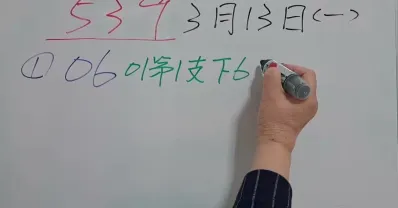 539 3月13日(一)
① 06 01第1支下6